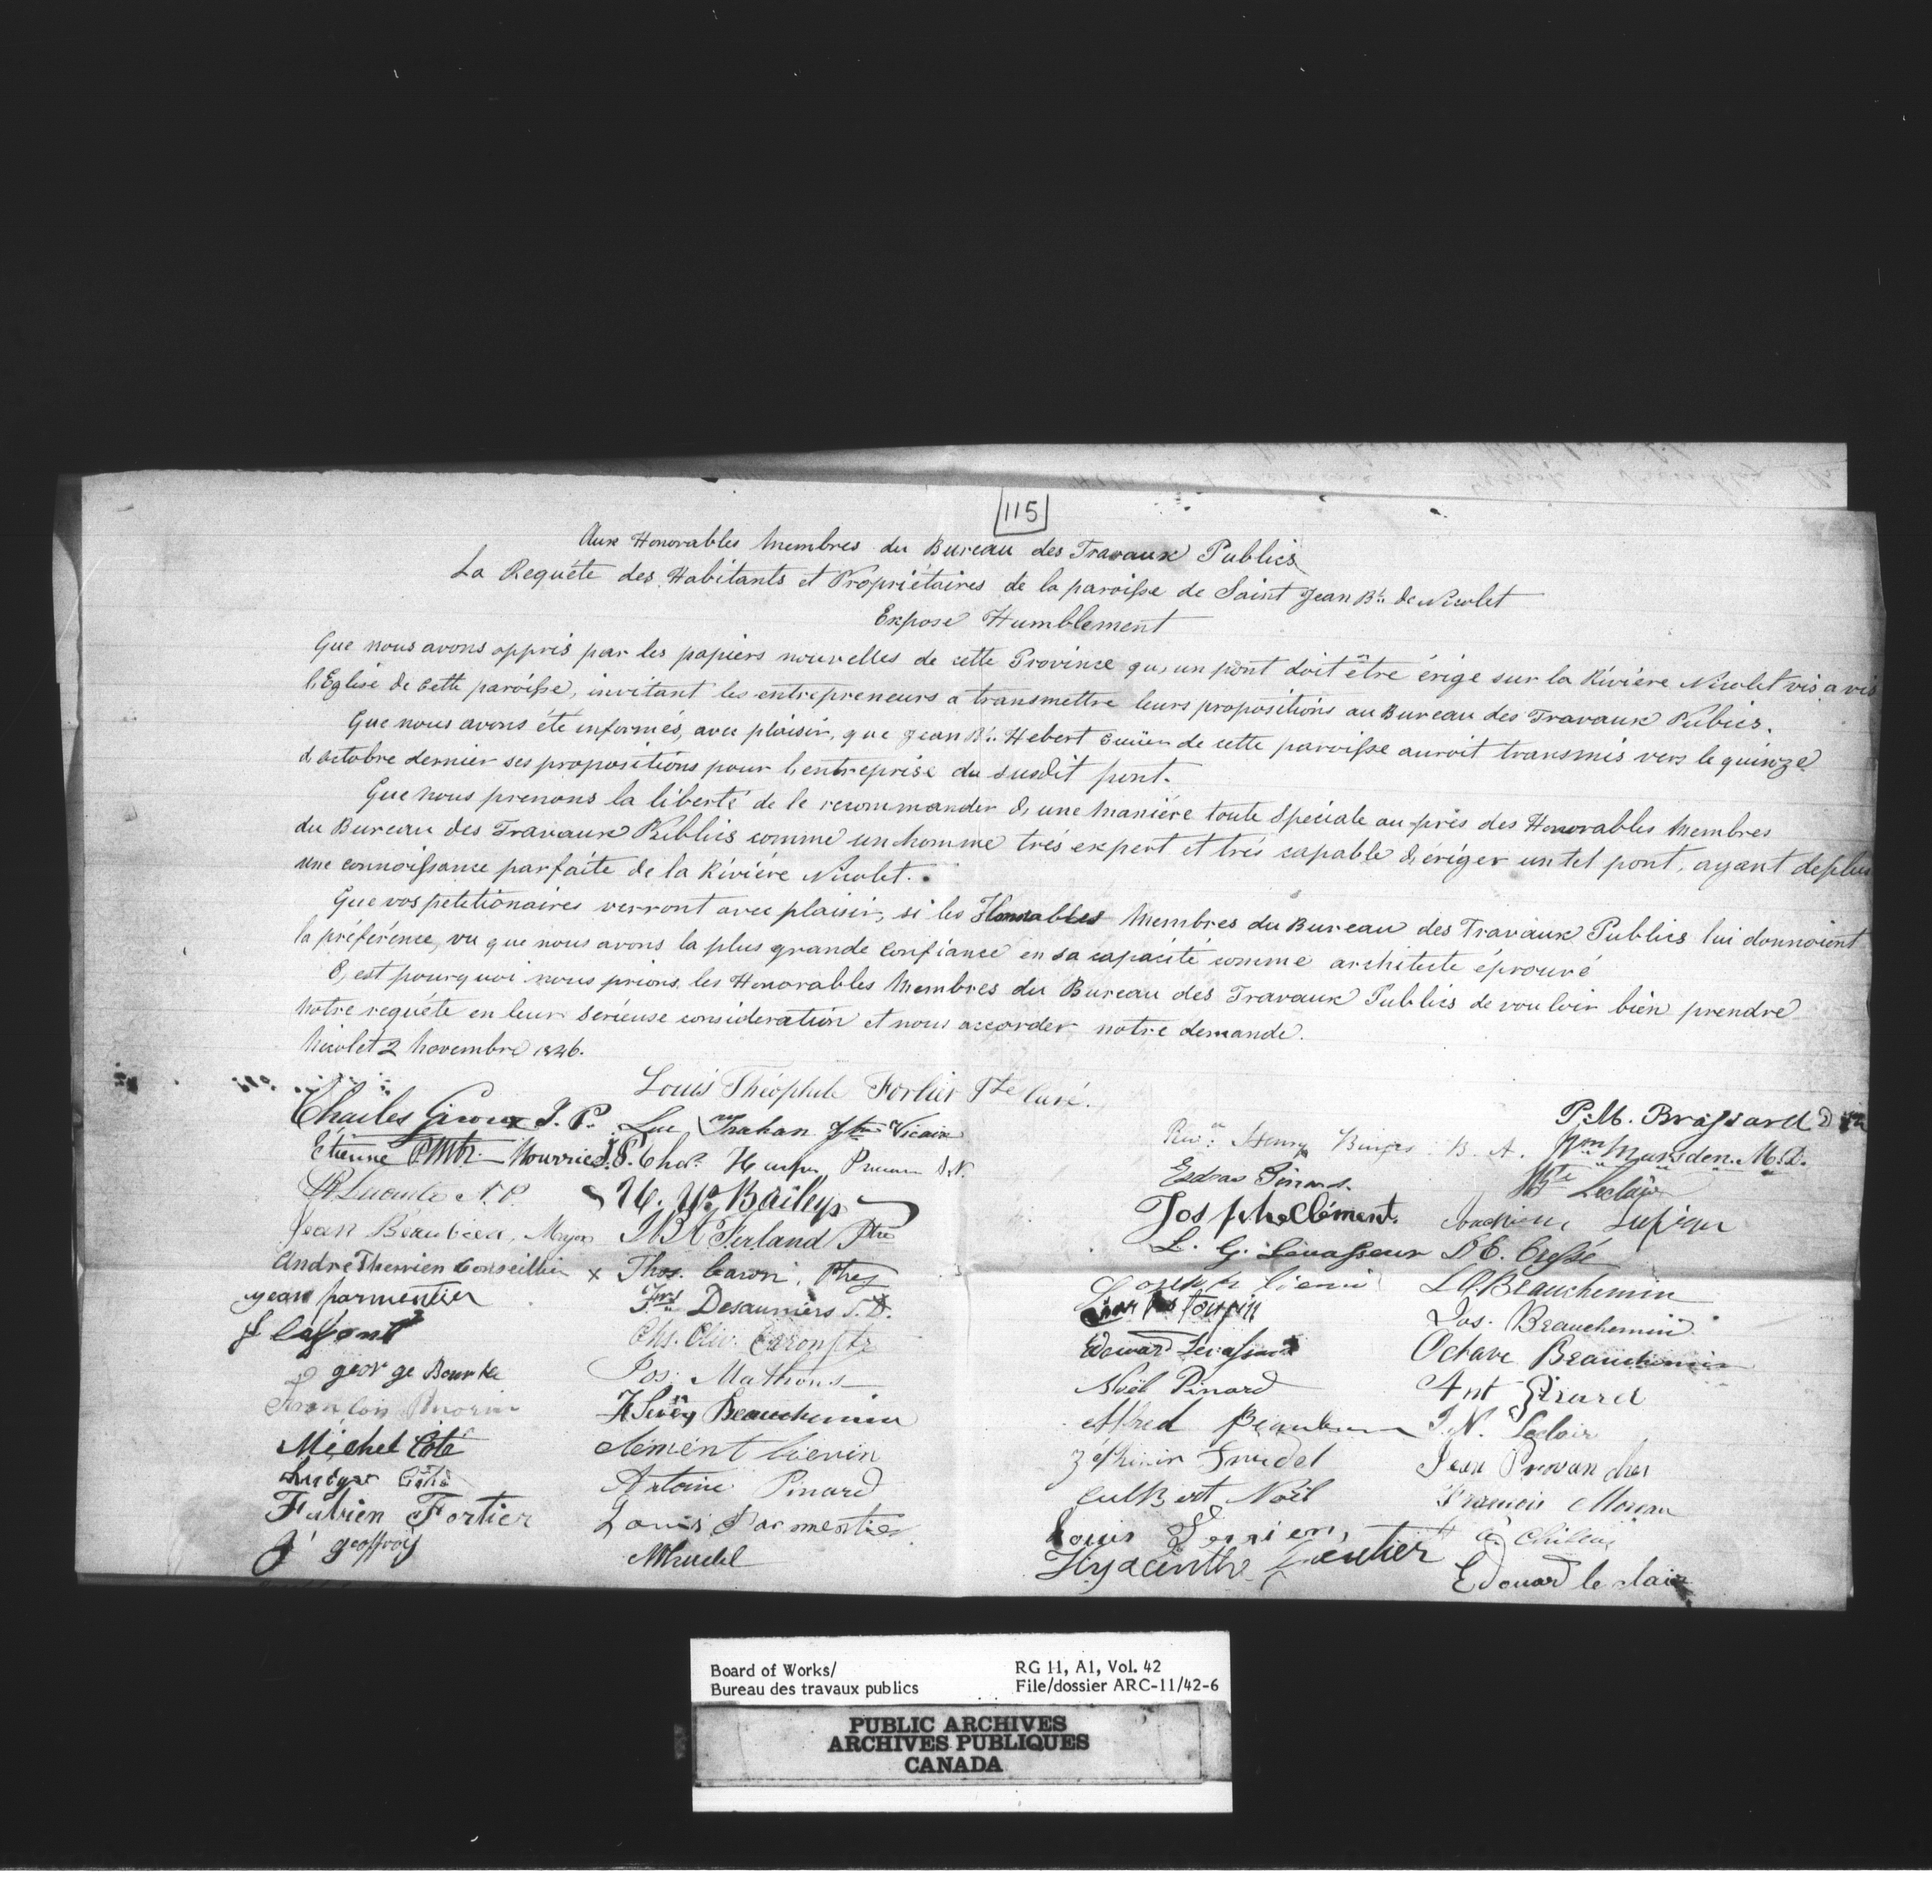 115
Aux Honorables Membres du Bureau des Travaux Publics
La Requête des Habitants et Propriétaires de la paroisse de Saint Jean Bte de Nicolet
Expose Humblement
Que nous avons appris par les papiers nouvelles de cette Province qu, un pont doit être érigé sur la Rivière Nicolet vis a vis
l,Eglise de Cette paroisse, invitant les entrepreneurs a transmettre leurs propositions au Bureau des Travaux Publics.
Que nous avons été informés, avec plaisir, que Jean Bte Hebert Ecuïer de cette paroisse auroit transmis vers le quinze
d,octobre dernier ses propositions pour l,entreprise du susdit pont.
Que nous prenons la liberté de le recommander d,une manière toute Spéciale au-près des Honorables Membres
du Bureau des Travaux Publics comme un homme très expert et très capable d,ériger un tel pont, ayant de plus
une connoissance parfaite de la Rivière Nicolet.
Que vos petitionaires verront avec plaisir, si les Honorables Membres du Bureau des Travaux Publics lui donnoient
la préférence, vu que nous avons la plus grande Confiance en sa capacité comme architecte éprouvé
C,est pourquoi nous prions les Honorables Membres du Bureau des Travaux Publics de vouloir bien prendre
notre requête en leur sérieuse consideration et nous accorder notre demande.
Nicolet 2 Novembre 1846.
Louis Théophile Fortier Ptre Curé.
Charles Giroux J. P. Luc Trahan Ptre Vicaire P. M. Brassard
Etienne Mourrier J.P. Revd Henry Burges B. A. Wm Marsden. M.D.
N. P. H. Wm Bailey Esdras Pinard. Leclair
Jean Beaubien, Mayor J B A Ferland Ptre Joseph Clément.
André Therrien Conseiller x Thos. Caron, Ptre L. G. Levasseur D E. Cressé
jean parmentier Frs Desauniers S.D. L O. Beauchemin
Chs. Oliv. Caron ptr Toupin Jos. Beauchemin
george Bourke Jos. Mathieu Edouard Levasseur Octave Beauchemin
Morin Beauchemin Noël Pinard Ant Pinard
Michel Coté Clément Alfred J. N. Leclair
Antoine Pinard Trudel Jean Provancher
Fabien Fortier Louis Parmentier Culbert Noël Francois Moreau
J geoffroy M Trudel Louis
Hyacinthe Edouard le clair
Board of Works/
Bureau des travaux publics
RG 11, A1, Vol. 42
File/dossier ARC-11/42-6
PUBLIC ARCHIVES
ARCHIVES PUBLIQUES
CANADA